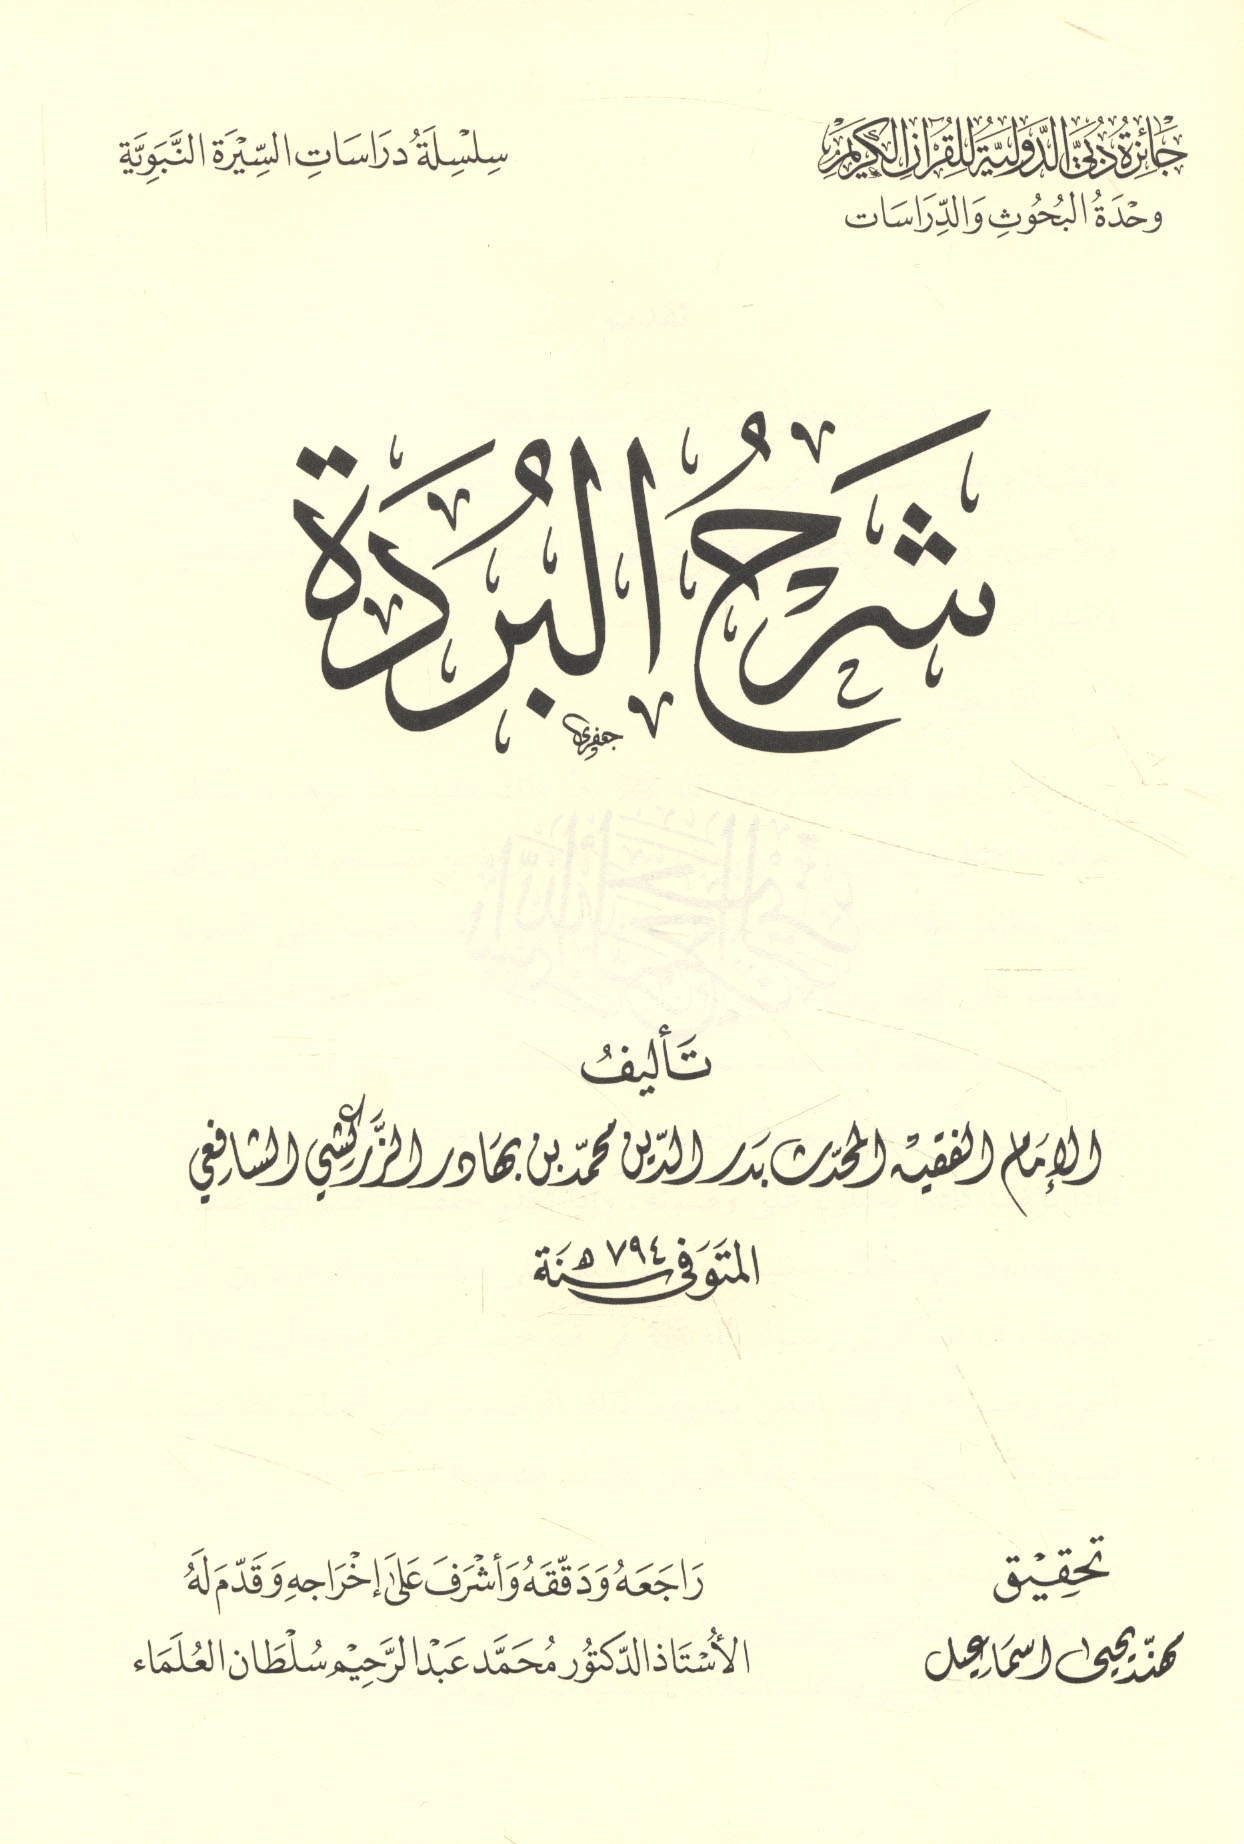 جَائِزَةُ دُبَيّ الدَّوْلِيَّةُ لِلْقُرْآنِ الْكَرِيمِ
وحْدَةُ البُحُوثِ وَالدِّرَاسَات
سِلسِلَةُ دِرَاسَاتِ السِّيْرَةِ النَّبَوِيَّة
شَرْحُ البُرْدَة
جعفري
تَأليفُ
الإمَام الفقيه المحدّث بَدر الدّين محمّد بن بهَادر الزَّركشي الشافعي
المتَوَفى سَنَة ٧٩٤ هـ
تحقِيْق
هند يحيى اسمَاعيل
رَاجَعَهُ وَدَقّقَهُ وَأشْرَفَ عَلىٰ إخْرَاجهِ وَقَدّمَ لَهُ
الأسْتَاذ الدّكتُور مُحَمَّد عَبْد الرَّحِيْم سُلْطَان العُلَمَاء